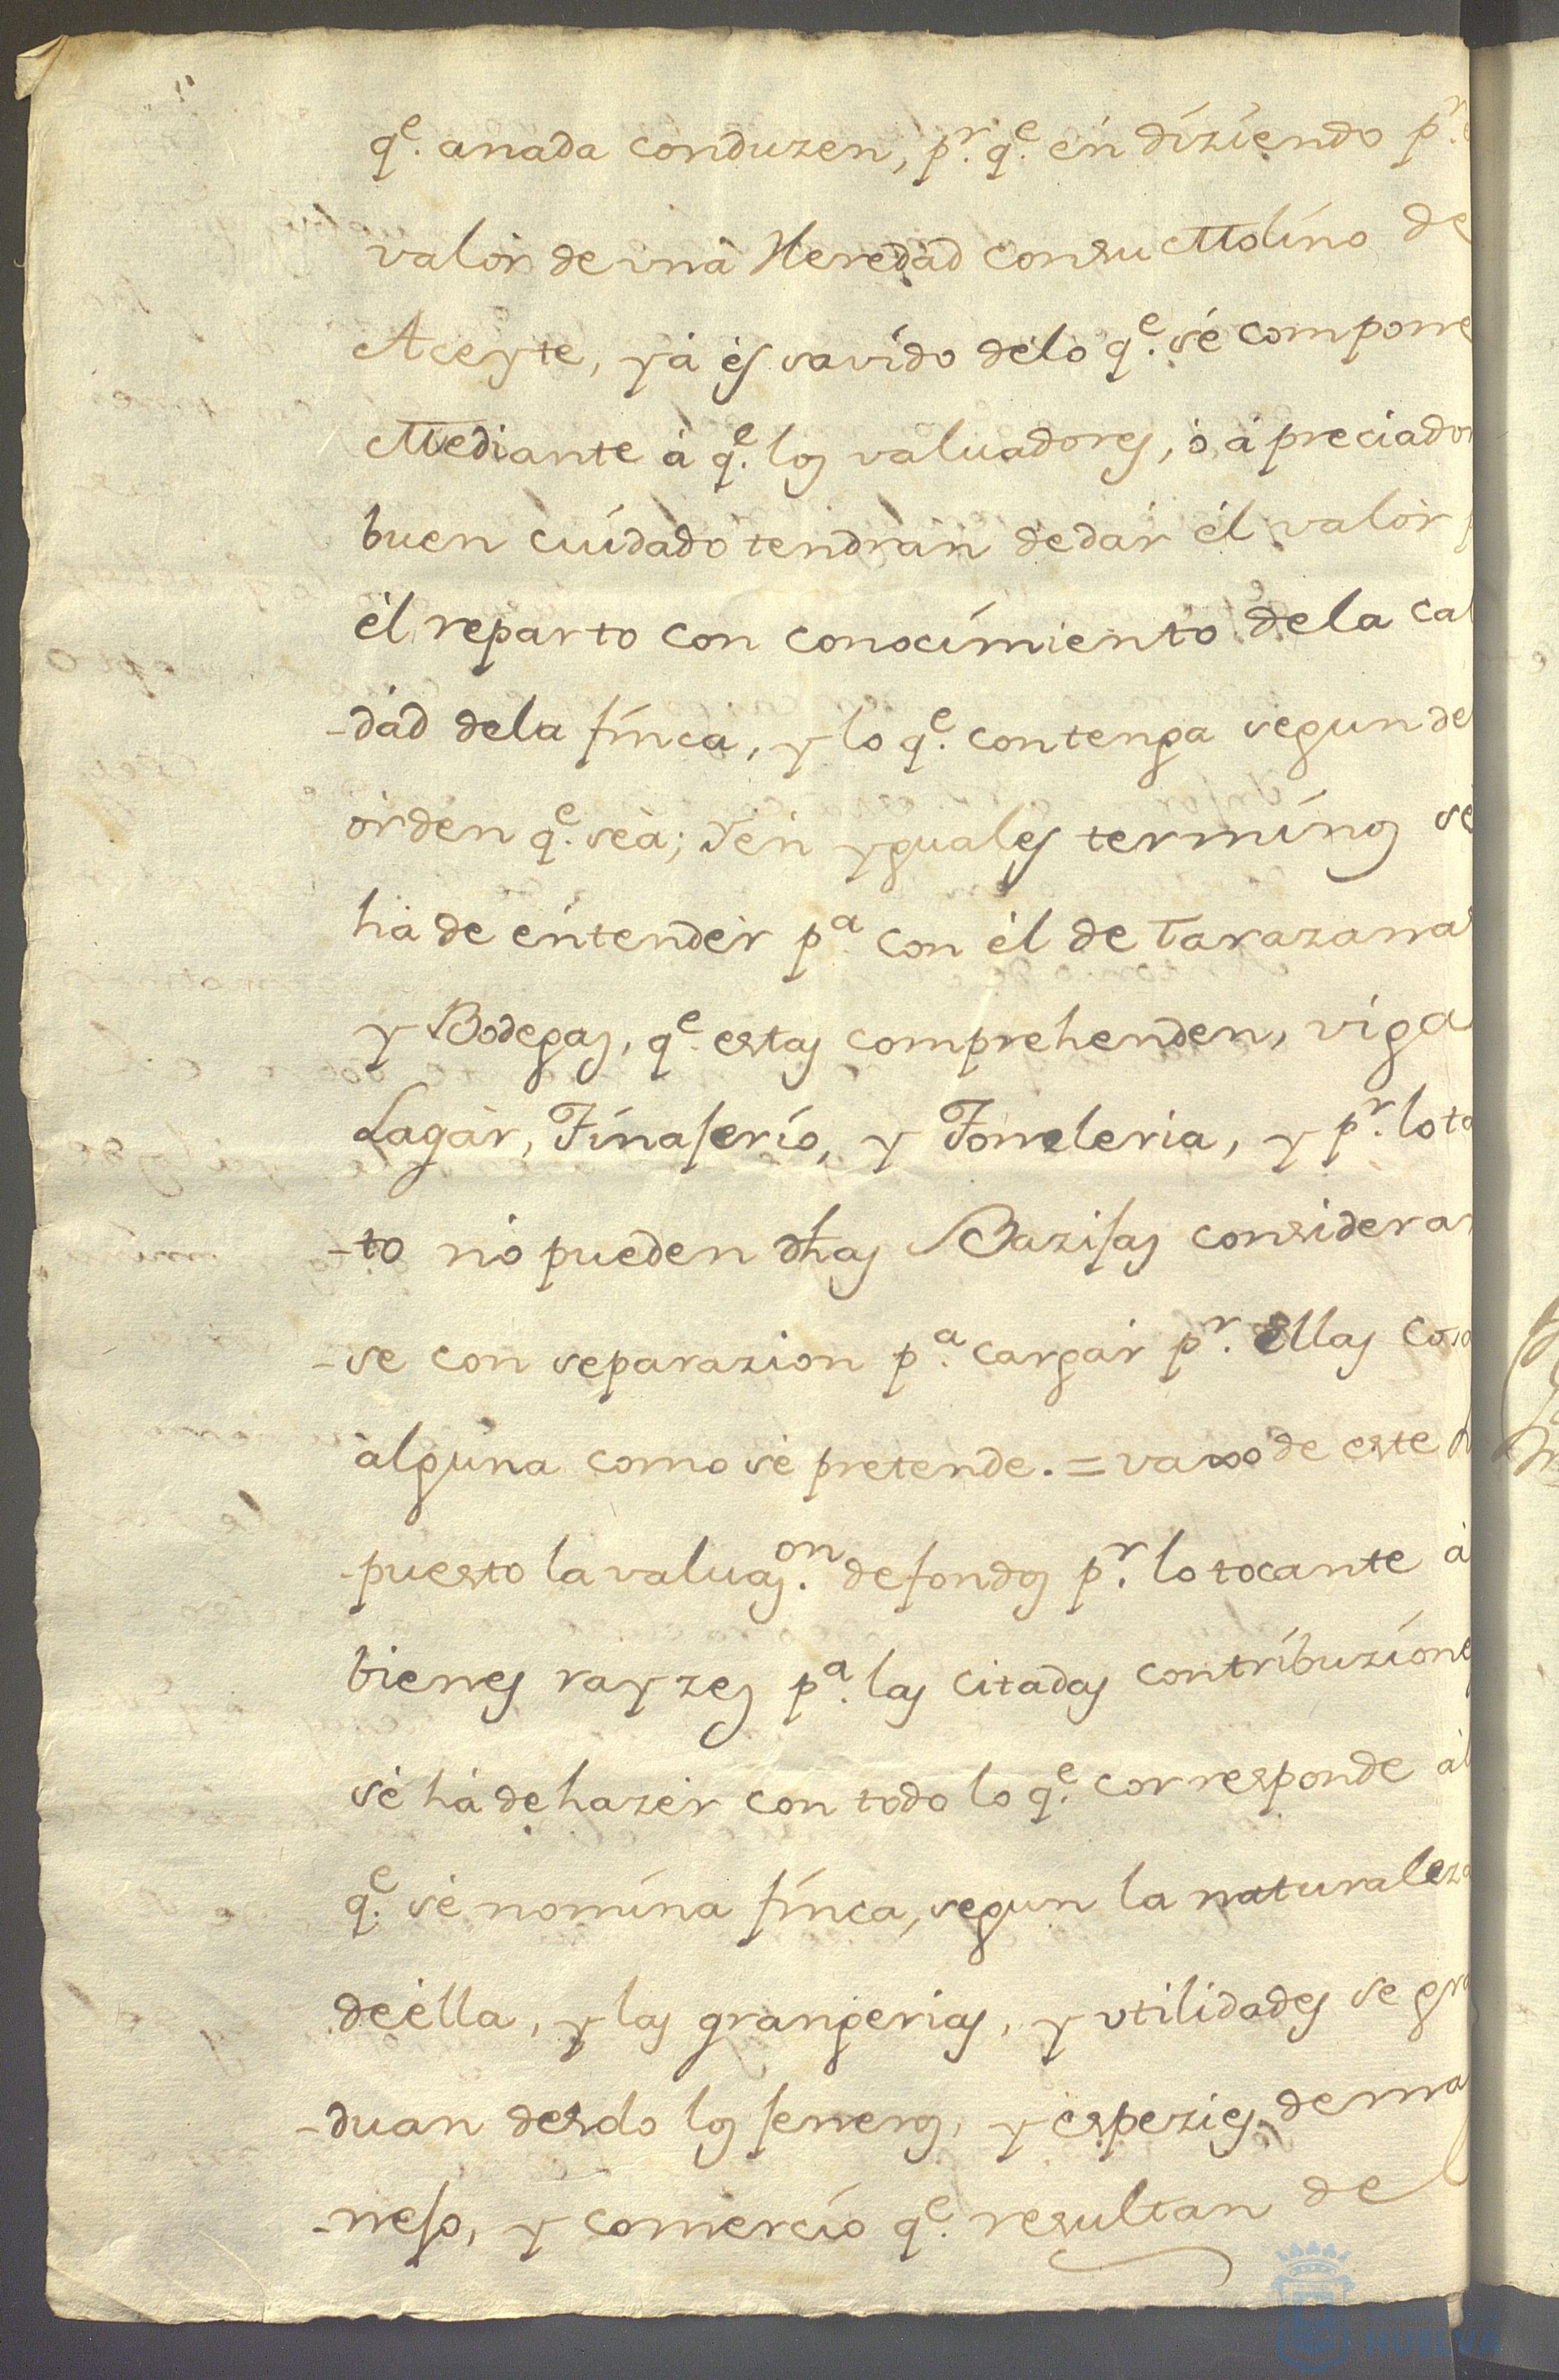 q.e anada conduzen, p.r q.e en diziendo p.r
valor de vna Heredad con su Molino de
Aceyte, ya es savido de lo q.e se compone
Mediante à q.e los valuadores, ò apreciador
buen cuidado tendràn de dàr èl valor
èl reparto con conocimiento de la cal
-dad de la finca, y lo q.e contenga segun de
orden q.e sea; Y en yguales terminos se
ha de entender p.a con èl de Tarazanas
y Bodegas, q.e estas comprehenden, viga
Lagàr, Tinajerio, y Toneleria, y p.r lo ta
-to no pueden dhas Bazijas considerar
-se con separazion p.a cargàr p.r Ellas cosa
alguna como se pretende. = vaxo de este
-puesto la valuaz.on de fondos p.r lo tocante à
bienes rayzes p.a las citadas contribuzione
se hà de hazer con todo lo q.e corresponde al
q.e se nomina finca, segun la naturaleza
de ella, y las grangerias, y vtilidades se gra
-duan desdo los jeneros, y espezies de ma
-nejo, y comercio q.e resultan de
HUELVA